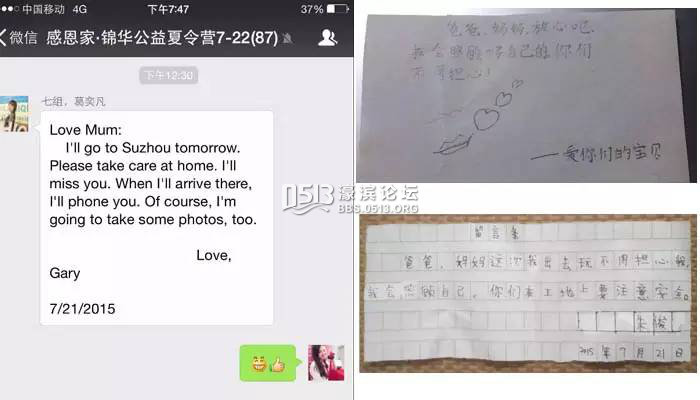 中国移动 4G 下午7:47 37%
微信 感恩家·锦华公益夏令营7-22(87)
下午12:30
七组，葛奕凡
Love Mum:
I'll go to Suzhou tomorrow.
Please take care at home. I'll
miss you. When I'll arrive there,
I'll phone you. Of course, I'm
going to take some photos, too.
Love,
Gary
7/21/2015
0513 濠滨论坛
BBS.0513.ORG
爸爸,妈妈,放心吧
我会照顾好自己的你们
不要担心!
——爱你们的宝贝
留言条
爸爸,妈妈这次我出去玩不用担心我,
我会照顾自己。你们在工地上要注意安全。
朱俊
2015年7月21日